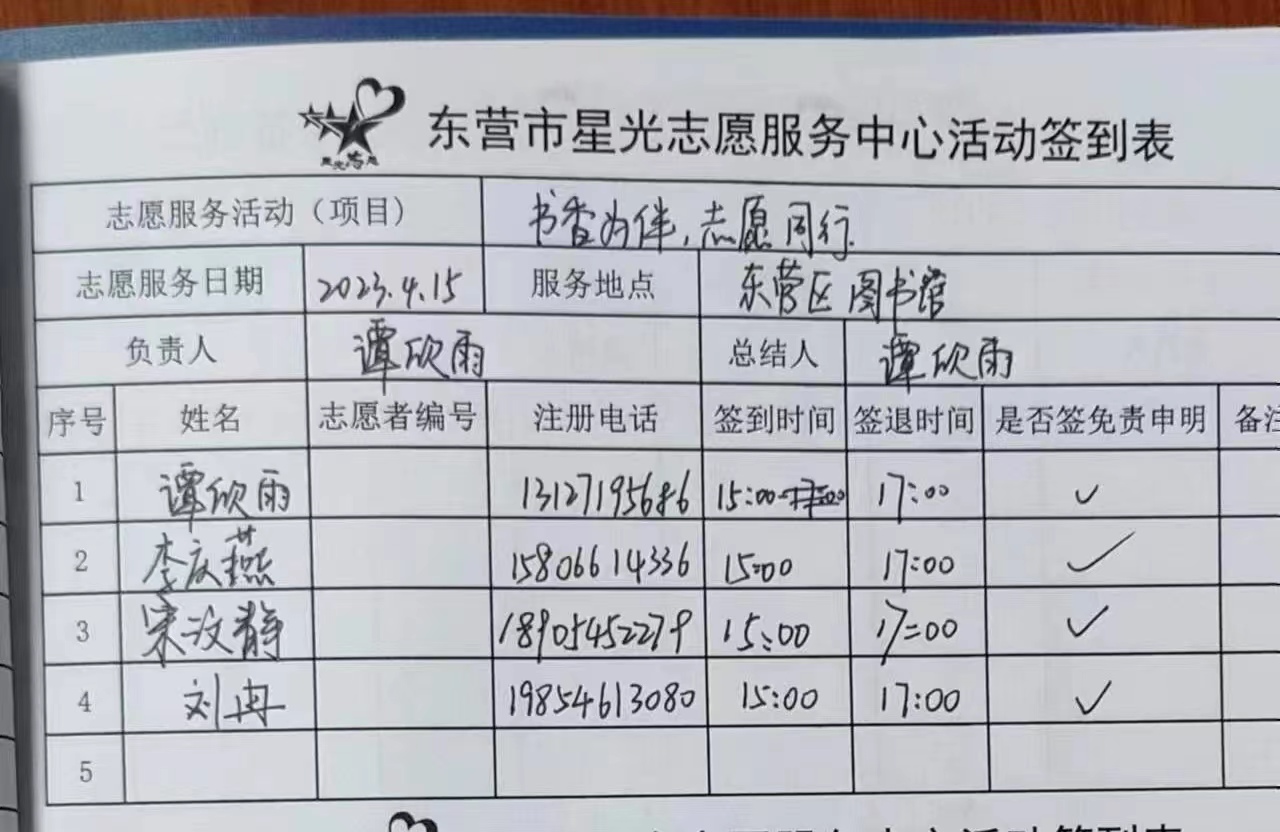 东营市星光志愿服务中心活动签到表
志愿服务活动（项目） 书香为伴，志愿同行
志愿服务日期 2023.4.15 服务地点 东营区图书馆
负责人 谭欣雨 总结人 谭欣雨
序号 姓名 志愿者编号 注册电话 签到时间 签退时间 是否签免责申明 备注
1 谭欣雨 13127195686 15:00 17:00 ✓
2 李庆燕 15806614336 15:00 17:00 ✓
3 宋汶静 18905452279 15:00 17:00 ✓
4 刘冉 19854613080 15:00 17:00 ✓
5